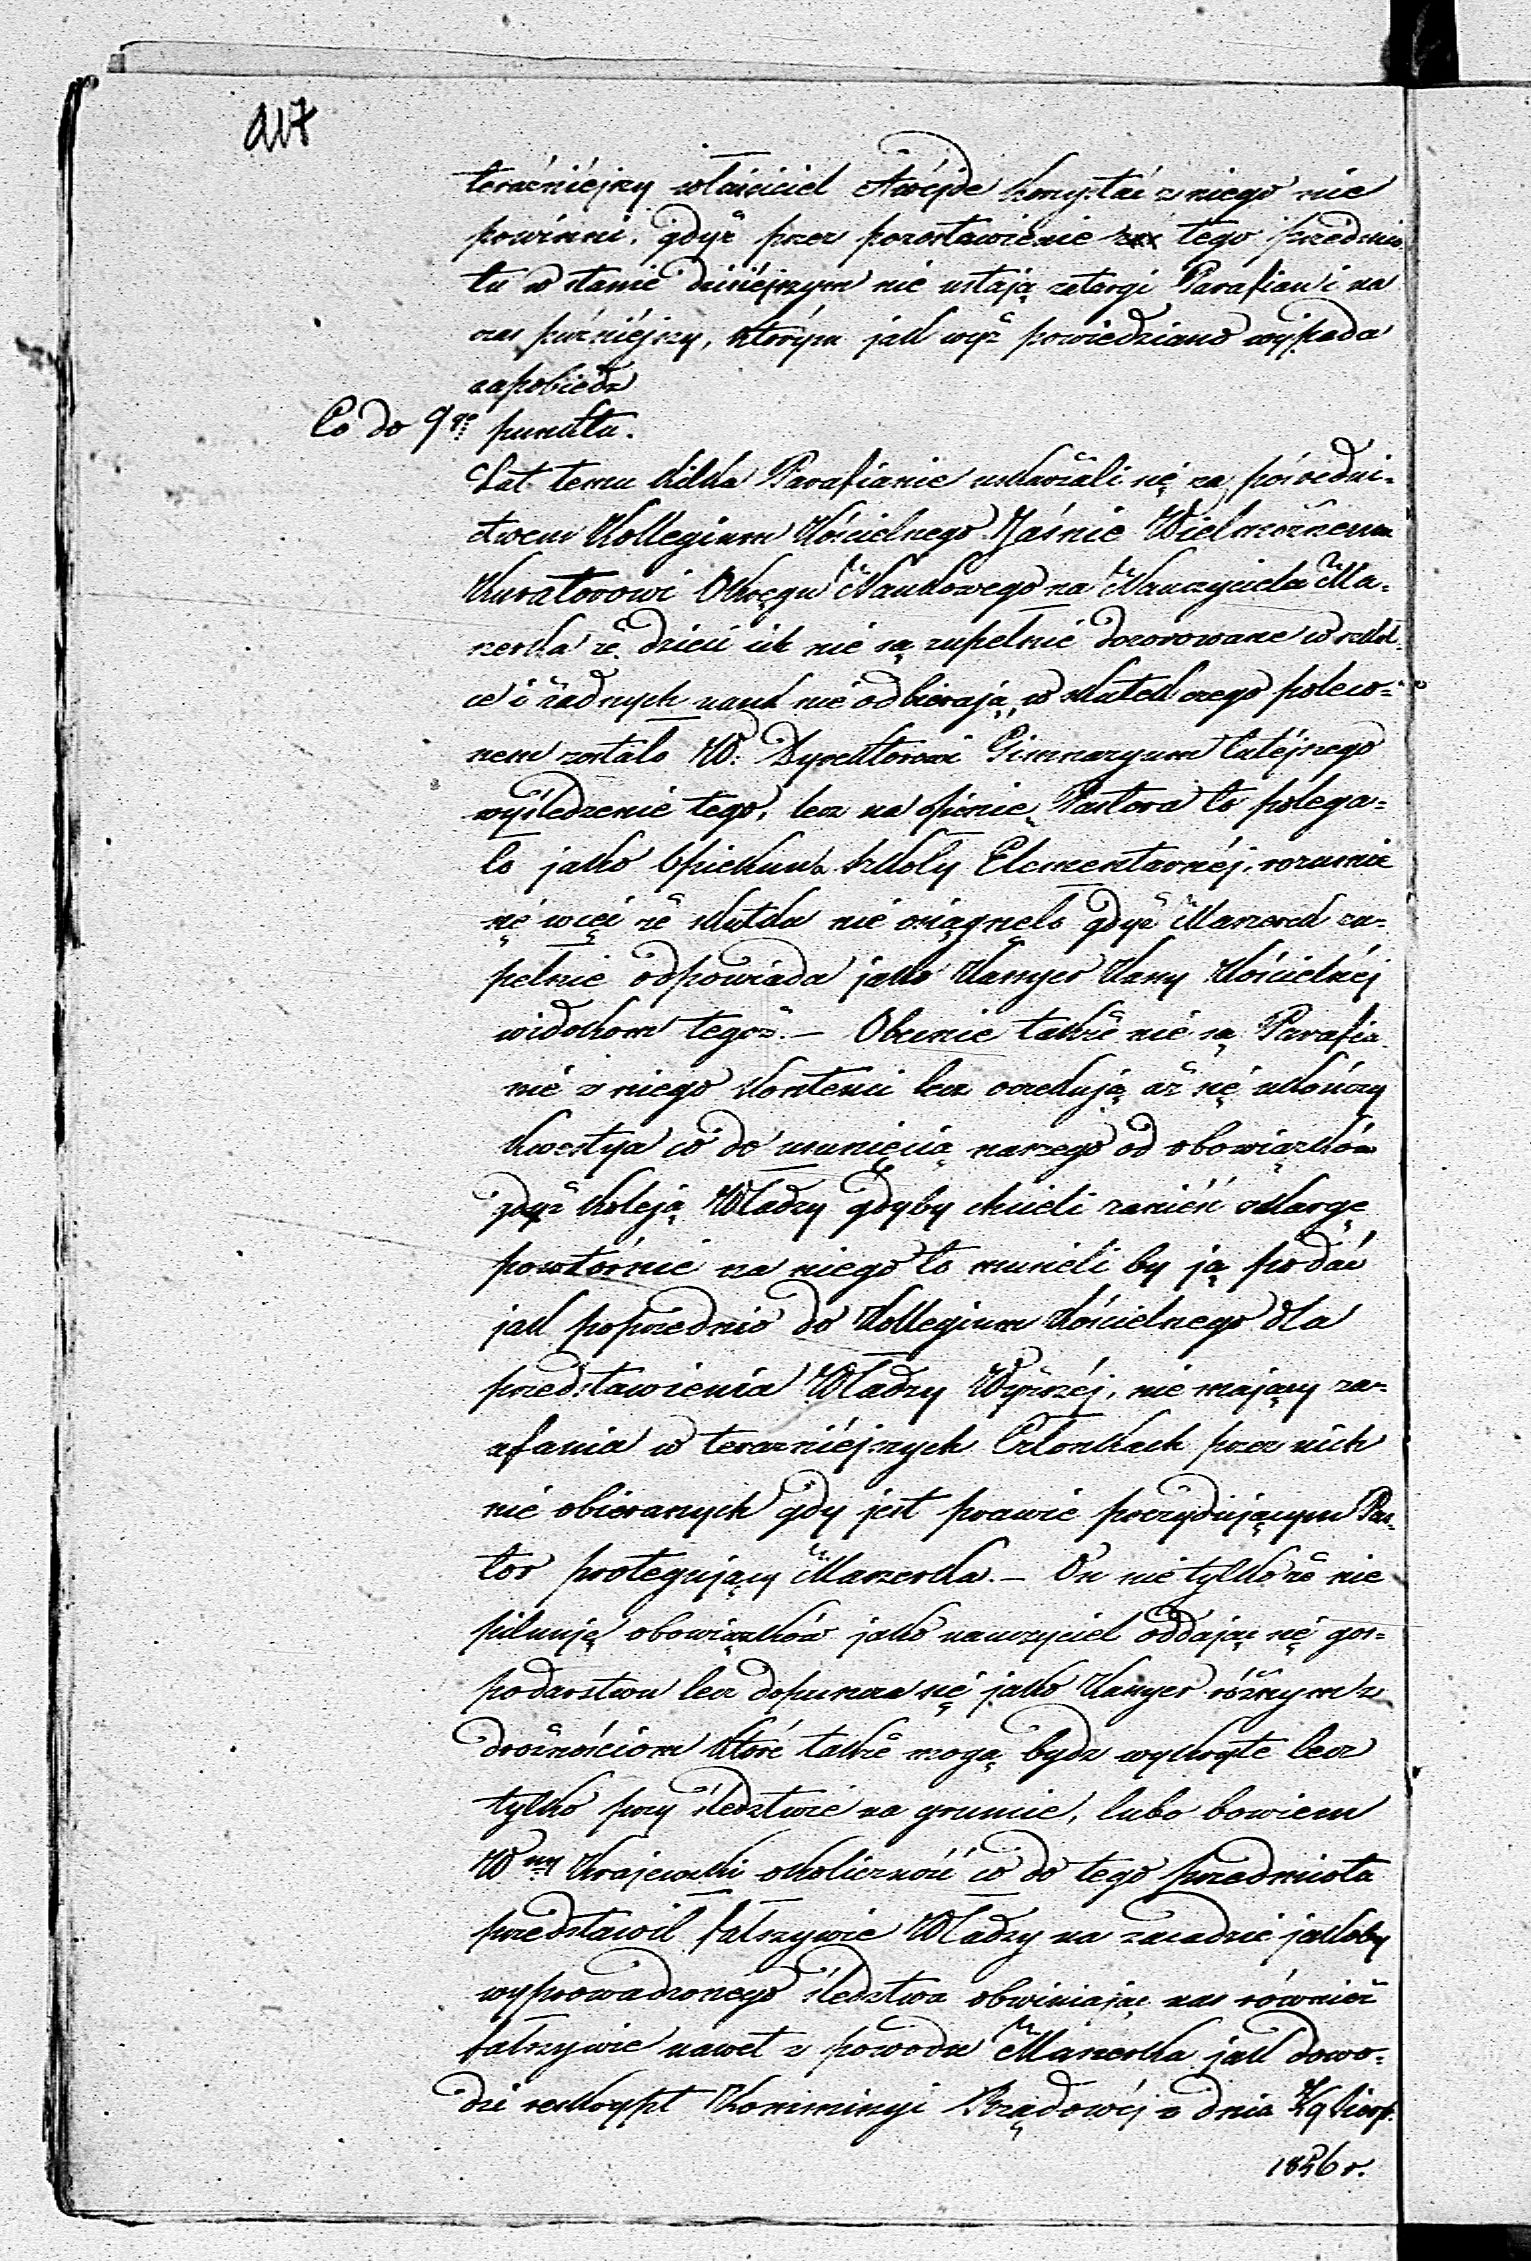 217
teraźniéjszy właściciel Awéjde korzystać z niego nie
powinni, gdyż przez pozostawienie tego przedmio¬
tu w stanie dzisiéjszym nie ustają zatargi Parafian i na
czas późniéjszy, którym jak wyż powiedziano wypada
zapobiedz
Co do 9go punktu.
Lat temu kilka Parafianie uskarżali się za pośredni¬
ctwem Kollegium Kościelnego Jaśnie Wielmożnemu
Kuratorowi Okręgu Naukowego na Nauczyciela Ma¬
nerka że dzieci ich nie są zupełnie dozorowane w szkół¬
ce i żadnych nauk nie odbierają, w skutek czego poleco¬
nem zostało W. Dyrektorowi Gimnazyum tutéjszego
wyśledzenie tego, lecz na opinię Pastora to polega¬
ło jako Opiekuna szkoły Elementarnéj, rozumie
się więc że skutku nie osiągnęło gdyż Manerek zu¬
pełnie odpowiada jako Kassyer Kassy Kościelnéj
widokom tegoż. — Obecnie także nie są Parafia¬
nie z niego kontenci lecz oczekują aż się ukończy
kwestya co do usunięcia naszego od obowiązków
gdyż koleją Władzy gdyby chcieli zanieść skargę
powtórnie na niego to musieli by ją podać
jak poprzednio do Kollegium Kościelnego dla
przedstawienia Władzy Wyższéj, nie mający za¬
ufania w teraźniéjszych Członkach przez nich
nie obieranych gdy jest prawie prezydującym Pas¬
tor protegujący Manerka. — On nie tylko że nie
pilnuję obowiązków jako nauczyciel oddając się gos¬
podarstwu lecz dopuszcza się jako Kassyer różnym z
drożnościom które także mogą bydz wykryte lecz
tylko przy śledztwie na gruncie, lubo bowiem
Wny Krajewski okoliczność co do tego przedmiotu
przedstawił fałszywie Władzy na zasadzie jakoby
wyprowadzonego śledztwa obwiniając nas również
fałszywie nawet z powodu Manerka jak dowo¬
dzi reskrypt Kommissyi Rządowéj z dnia Sierp.
1856 r.